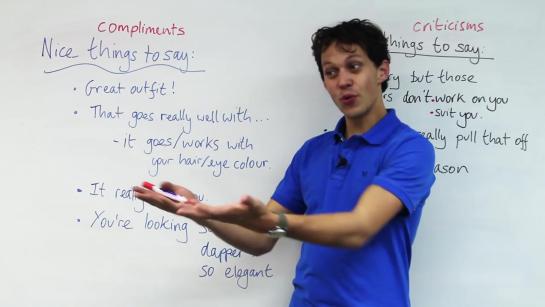 compliments
Nice things to say:
• Great outfit!
• That goes really well with...
- it goes/works with
your hair/eye colour.
• It
• You're looking
dapper
so elegant
criticisms
things to say:
but those
don't • work on you
• suit you.
pull that off